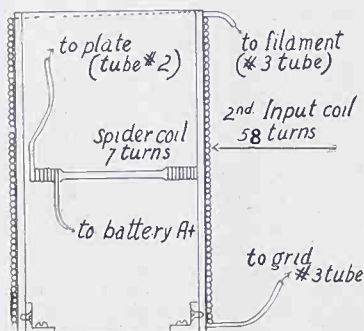 to plate
(tube #2)
to filament
(#3 tube)
2nd. Input coil
58 turns
Spider coil
7 turns
to battery A+
to grid
#3 tube